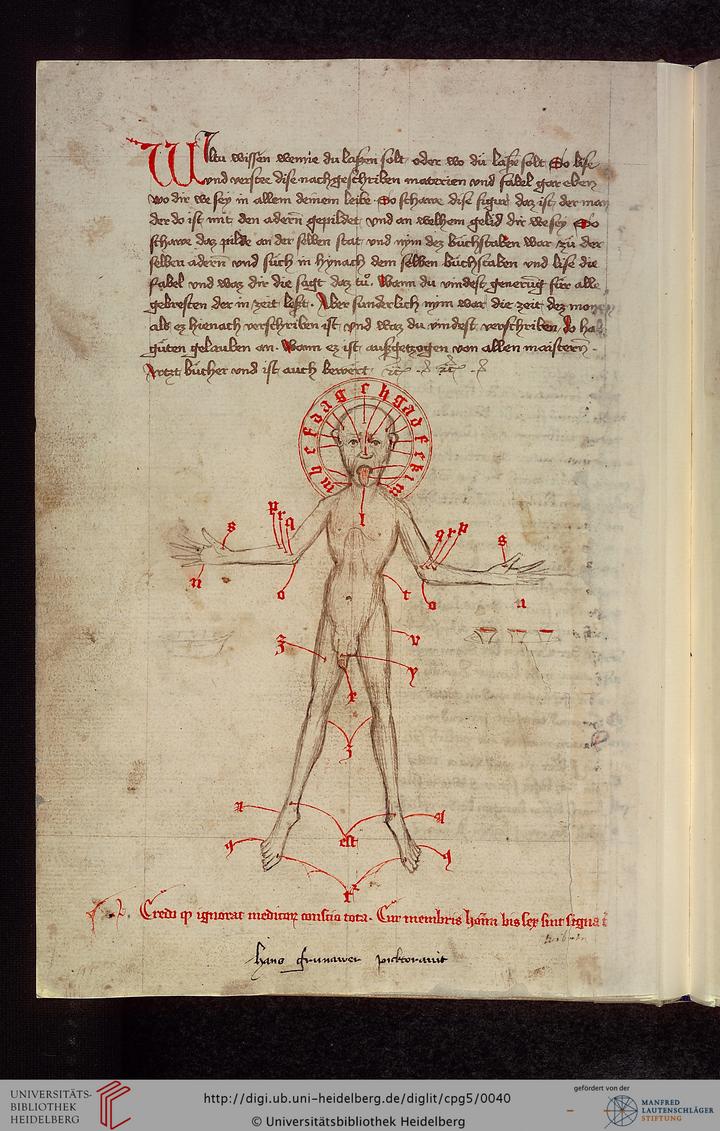 Wiltu wissen wenne du lassen solt oder wo du lasse solt So lise
vnd verstee dise nachgeschriben materien vnd tabel gar eben
wo dir we sey in allem deinem leibe So schawe dise figur daz ist der man
der do ist mit den adern gepildet vnd an welhem gelid dir we sey So
schawe daz pilde an der selben stat vnd nym dez buchstaben war zu der
selben adern vnd such in hynach dem selben buchstaben vnd lise die
tabel vnd waz dir die sagt daz tu Wann du vindest generung fur alle
gebresten der in zeit lest Aber sunderlich nym war die zeit dez
als ez hienach verschriben ist vnd waz du vindest verschriben do
guten gelauben an Wann ez ist aussgetzogen von allen maistern
Artzt bucher vnd ist auch bewert
m b c f d a g c h g a d f e k i m
l
p r q
s
n
o
q r p
s
o
t
n
v
z
y
x
z
a
est
q
q
Credi qp ignorat medicor conscio tota. Cur membris homin bis sex sint signa
hans grunawer picktorauit
UNIVERSITÄTS-
BIBLIOTHEK
HEIDELBERG
http://digi.ub.uni-heidelberg.de/diglit/cpg5/0040
© Universitätsbibliothek Heidelberg
gefördert von der
MANFRED
LAUTENSCHLÄGER
STIFTUNG